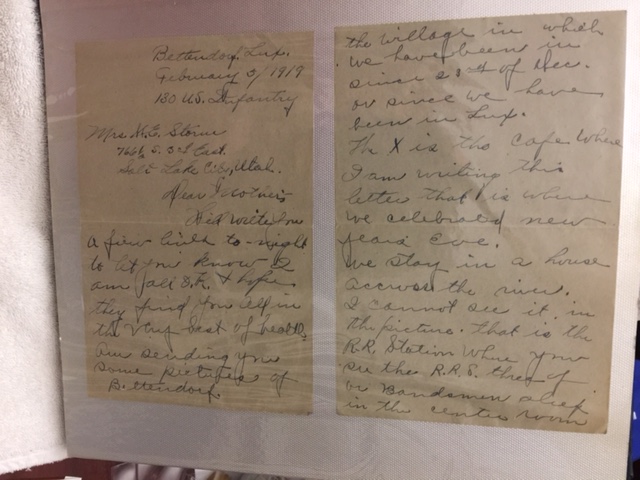 Bettendorf, Lux.
February 3/1919
130 U.S. Infantry
Mrs M.E. Storm
766 S. 3rd East.
Salt Lake City, Utah.
Dear Mother:
Will write you
a few lines to-night
to let you know I
am fall O.K. & hope
they find you all in
the very best of health.
Am sending you
some pictures of
Bettendorf
the village in which
we have been in
since 23rd of Dec.
or since we have
been in Lux.
The X is the cafe where
I am writing this
letter that is where
we celebrated new
years Eve.
We stay in a house
accross the river.
I cannot see it in
the picture. That is the
R.R. Station where you
see the R.R.S. three of
or Bandsmen sleep
in the center room